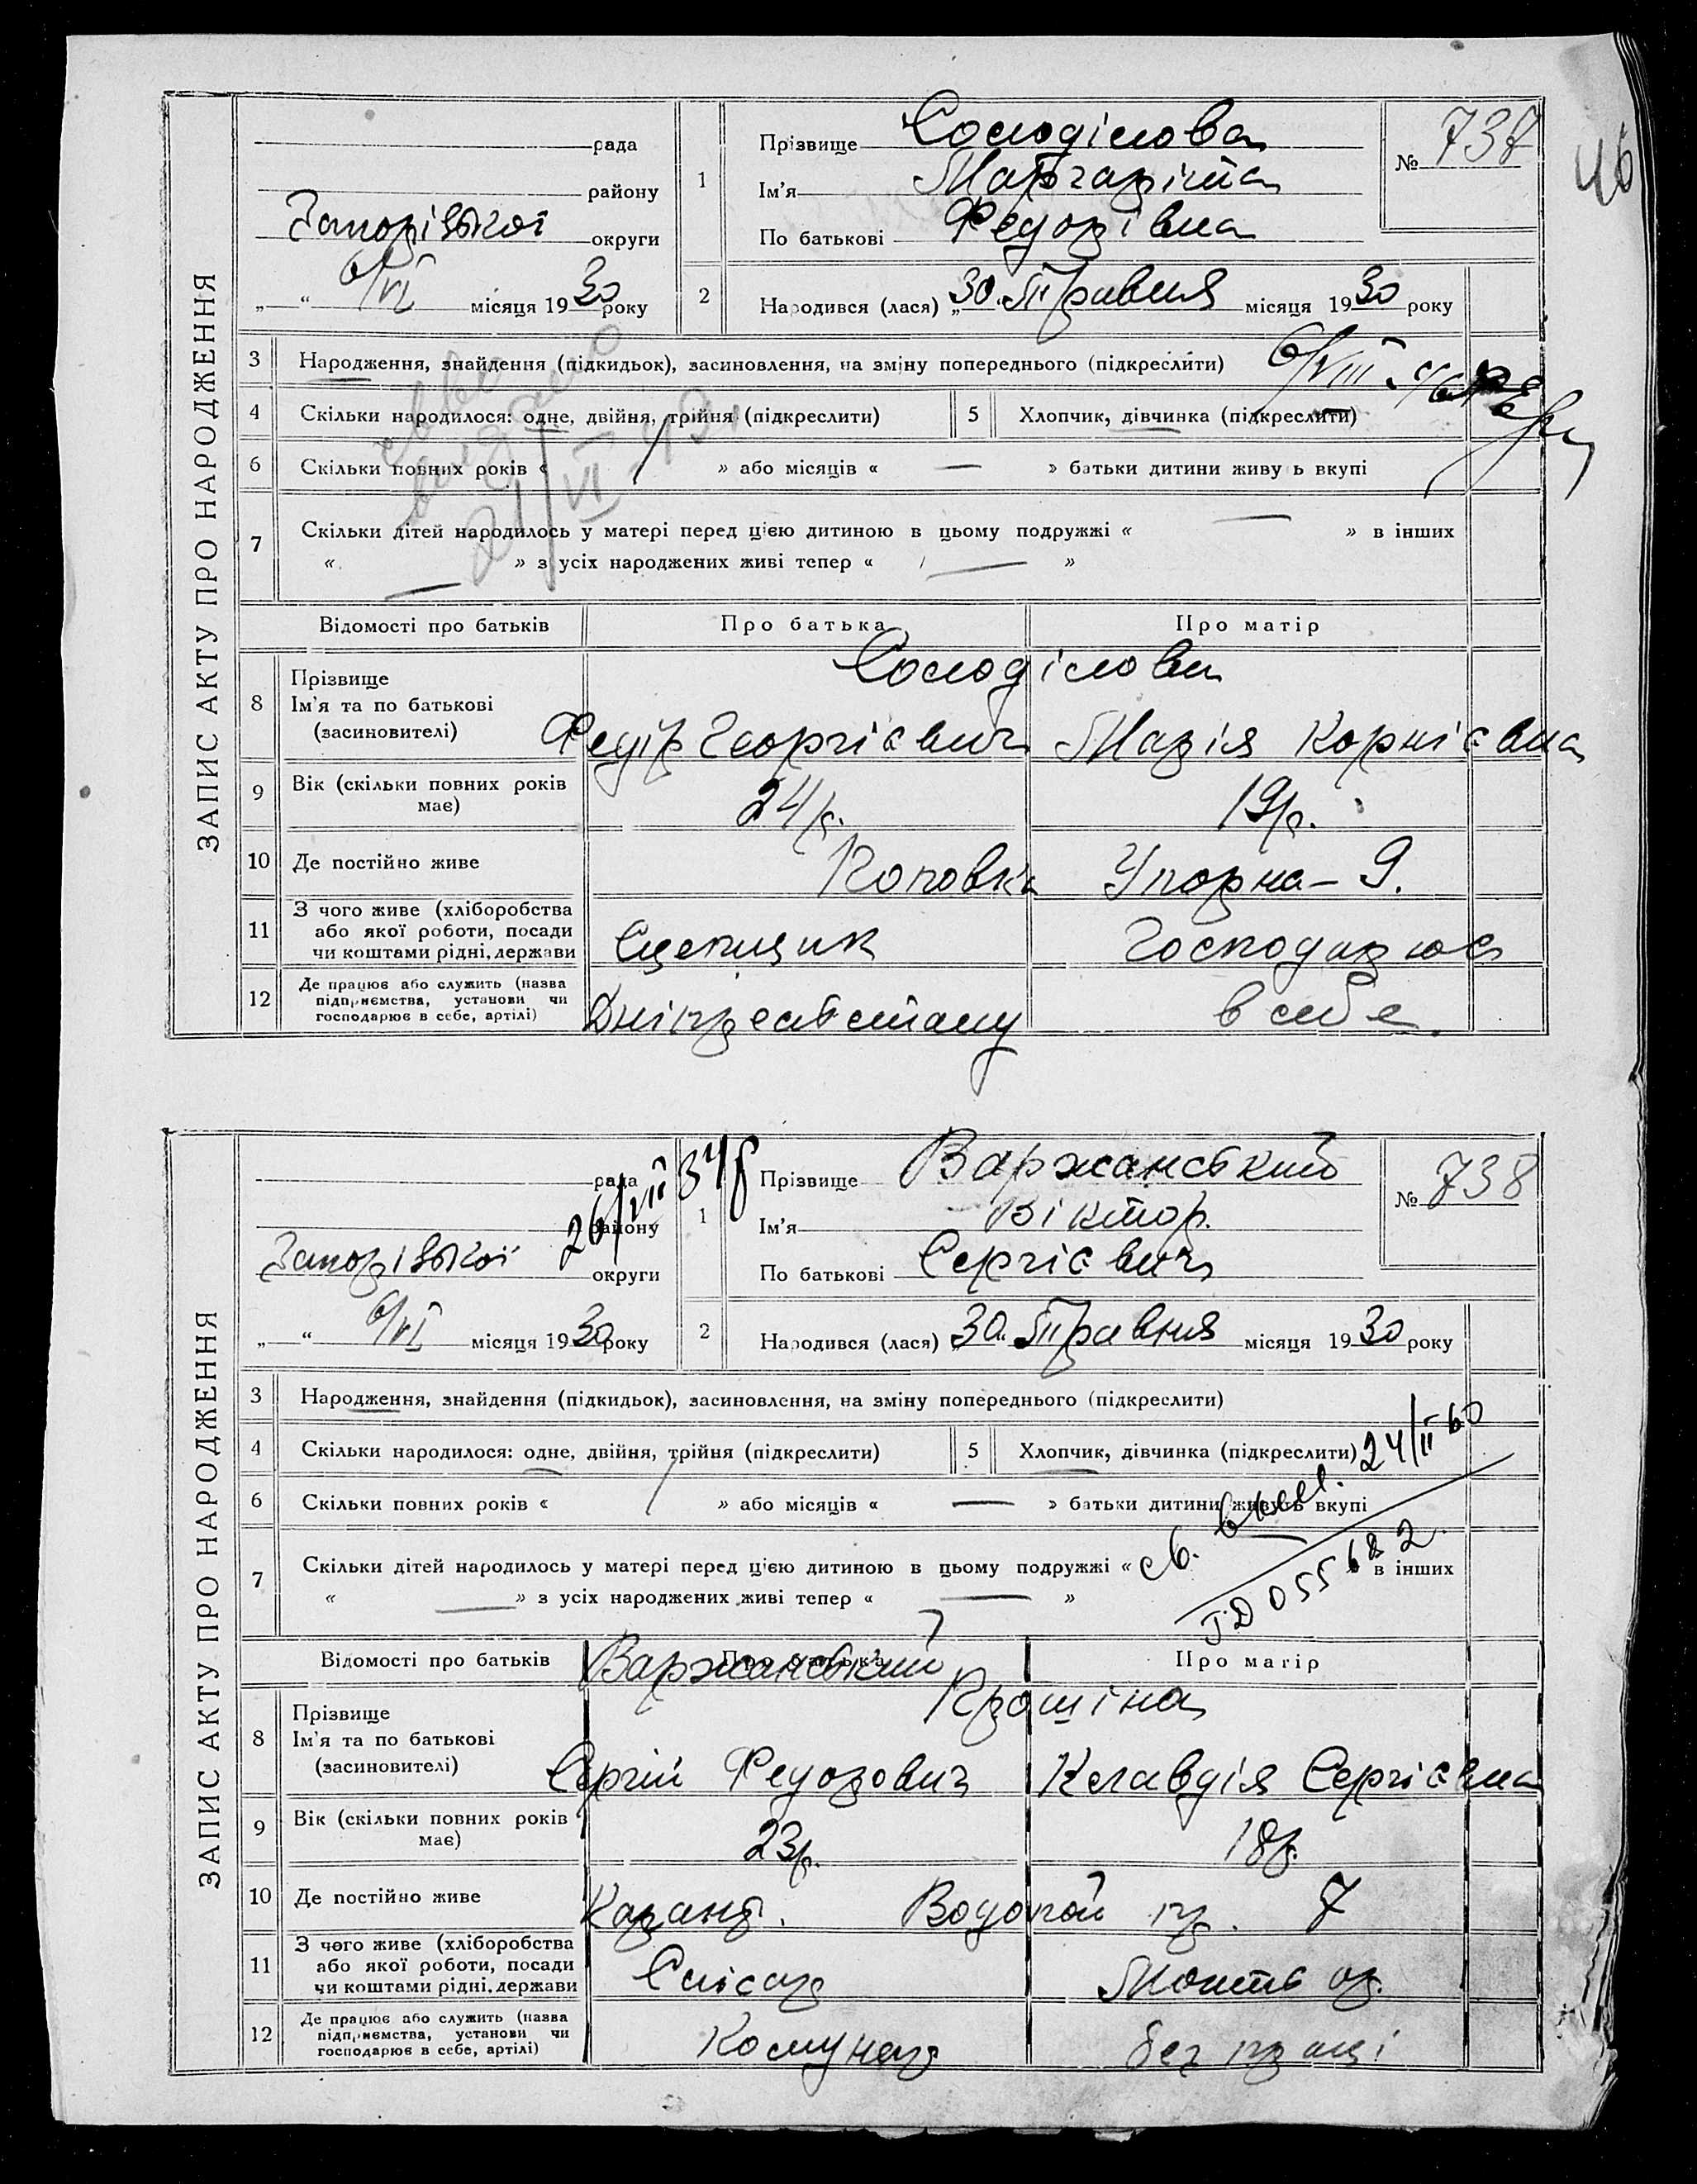 46
ЗАПИС АКТУ ПРО НАРОДЖЕННЯ
рада
району
Запорізької округи
„ “ 6/VI місяця 1930 року
1 Прізвище Солоділова
Ім'я Маргаріта
По батькові Федорівна
№ 737
2 Народився (лася) „30“ Травня місяця 1930 року
3 Народження, знайдення (підкидьок), засиновлення, на зміну попереднього (підкреслити)
6/VIII
4 Скільки народилося: одне, двійня, трійня (підкреслити) 5 Хлопчик, дівчинка (підкреслити)
6 Скільки повних років « 1 » або місяців « — » батьки дитини живуть вкупі
21/VI
7 Скільки дітей народилось у матері перед цією дитиною в цьому подружжі « — » в інших
« — » з усіх народжених живі тепер « — »
Відомості про батьків Про батька Про матір
8 Прізвище Ім'я та по батькові (засиновителі)
Солоділови
Федір Георгієвич Марія Корнієвна
9 Вік (скільки повних років має) 24 р. 19 р.
10 Де постійно живе Упорна – 9.
11 З чого живе (хліборобства або якої роботи, посади чи коштами рідні, держави Сцепщик Господарює
12 Де працює або служить (назва підприємства, установи чи господарює в себе, артілі) в себе.
ЗАПИС АКТУ ПРО НАРОДЖЕННЯ
рада
району
26/VII 34 р
Запорізької округи
„ “ 6/VI місяця 1930 року
1 Прізвище Варжанський
Ім'я Віктор.
По батькові Сергієвич
№ 738
2 Народився (лася) „30“ Травня місяця 1930 року
3 Народження, знайдення (підкидьок), засиновлення, на зміну попереднього (підкреслити)
4 Скільки народилося: одне, двійня, трійня (підкреслити) 5 Хлопчик, дівчинка (підкреслити)
24/II 60
6 Скільки повних років « 1 » або місяців « — » батьки дитини живуть вкупі
7 Скільки дітей народилось у матері перед цією дитиною в цьому подружжі « — » в інших
« — » з усіх народжених живі тепер « — »
055682
Відомості про батьків Про батька Про матір
8 Прізвище Ім'я та по батькові (засиновителі)
Варжанський Крошіна
Сергій Федорович Клавдія Сергієвна
9 Вік (скільки повних років має) 23 р. 18 р.
10 Де постійно живе Карант. Водопой пр. 7
11 З чого живе (хліборобства або якої роботи, посади чи коштами рідні, держави Слісар
12 Де працює або служить (назва підприємства, установи чи господарює в себе, артілі) Комунар без праці